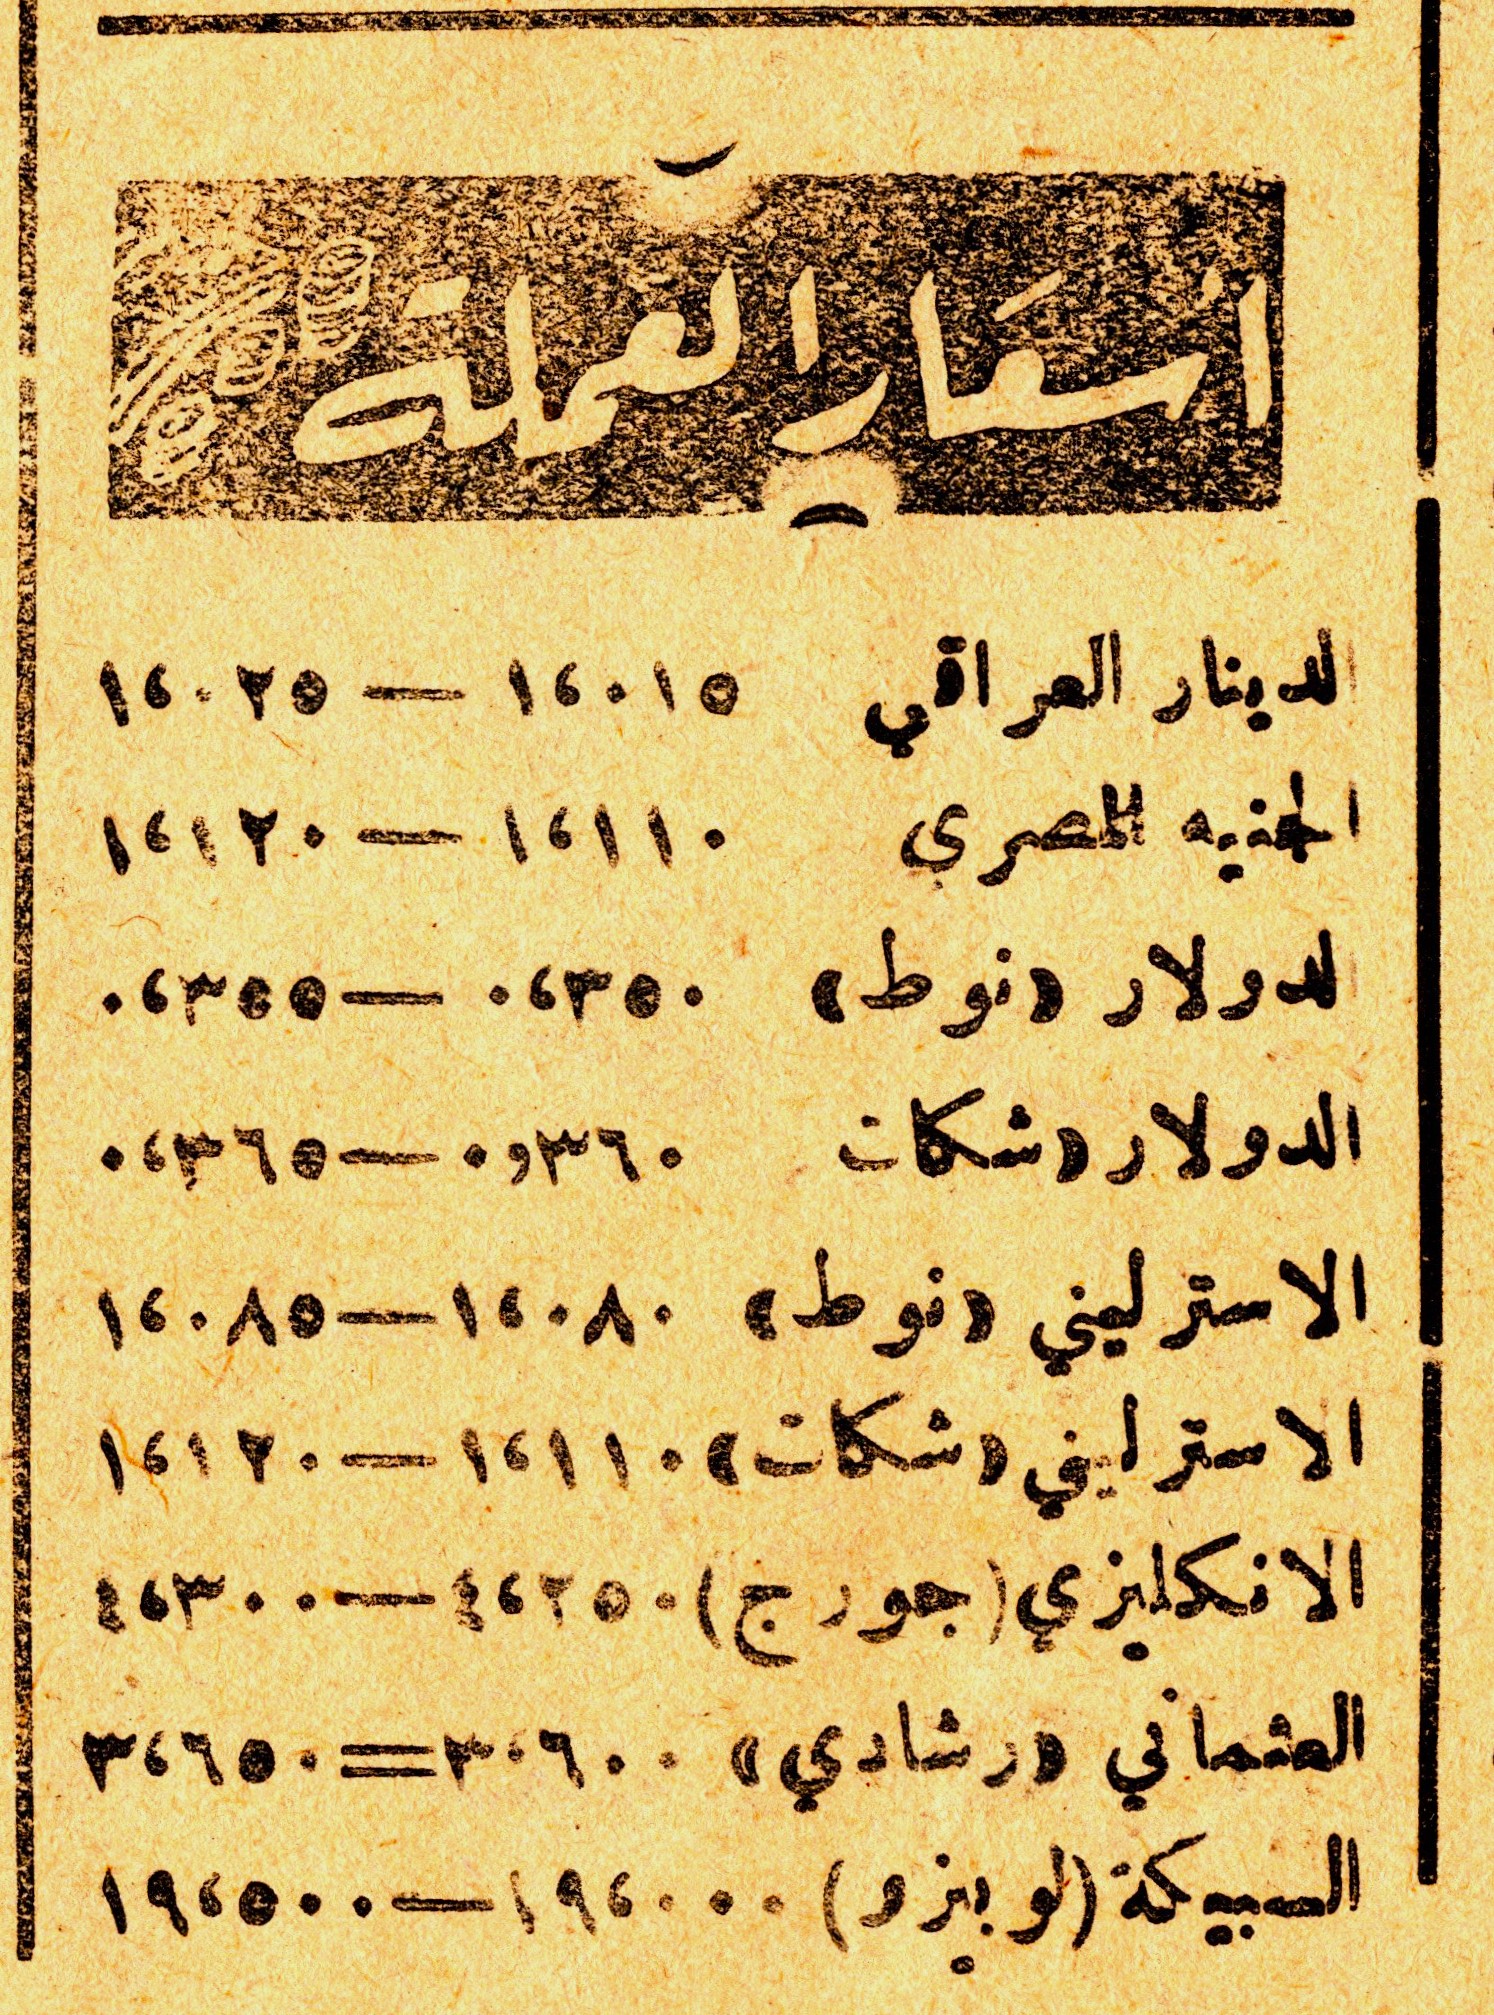 أسعار العملة
الدينار العراقي ١،٠١٥ — ١،٠٢٥
الجنيه المصري ١،١١٠ — ١،١٢٠
الدولار «نوط» ٠،٣٥٠ — ٠،٣٥٥
الدولار «شكات ٠,٣٦٠ — ٠،٣٦٥
الاسترليني «نوط» ١،٠٨٠ — ١،٠٨٥
الاسترليني «شكات» ١،١١٠ — ١،١٢٠
الانكليزي (جورج) ٤،٢٥٠ — ٤،٣٠٠
العثماني «رشادي» ٣،٦٠٠ = ٣،٦٥٠
السبيكة (لوبيزو) ١٩،٠٠٠ — ١٩،٥٠٠